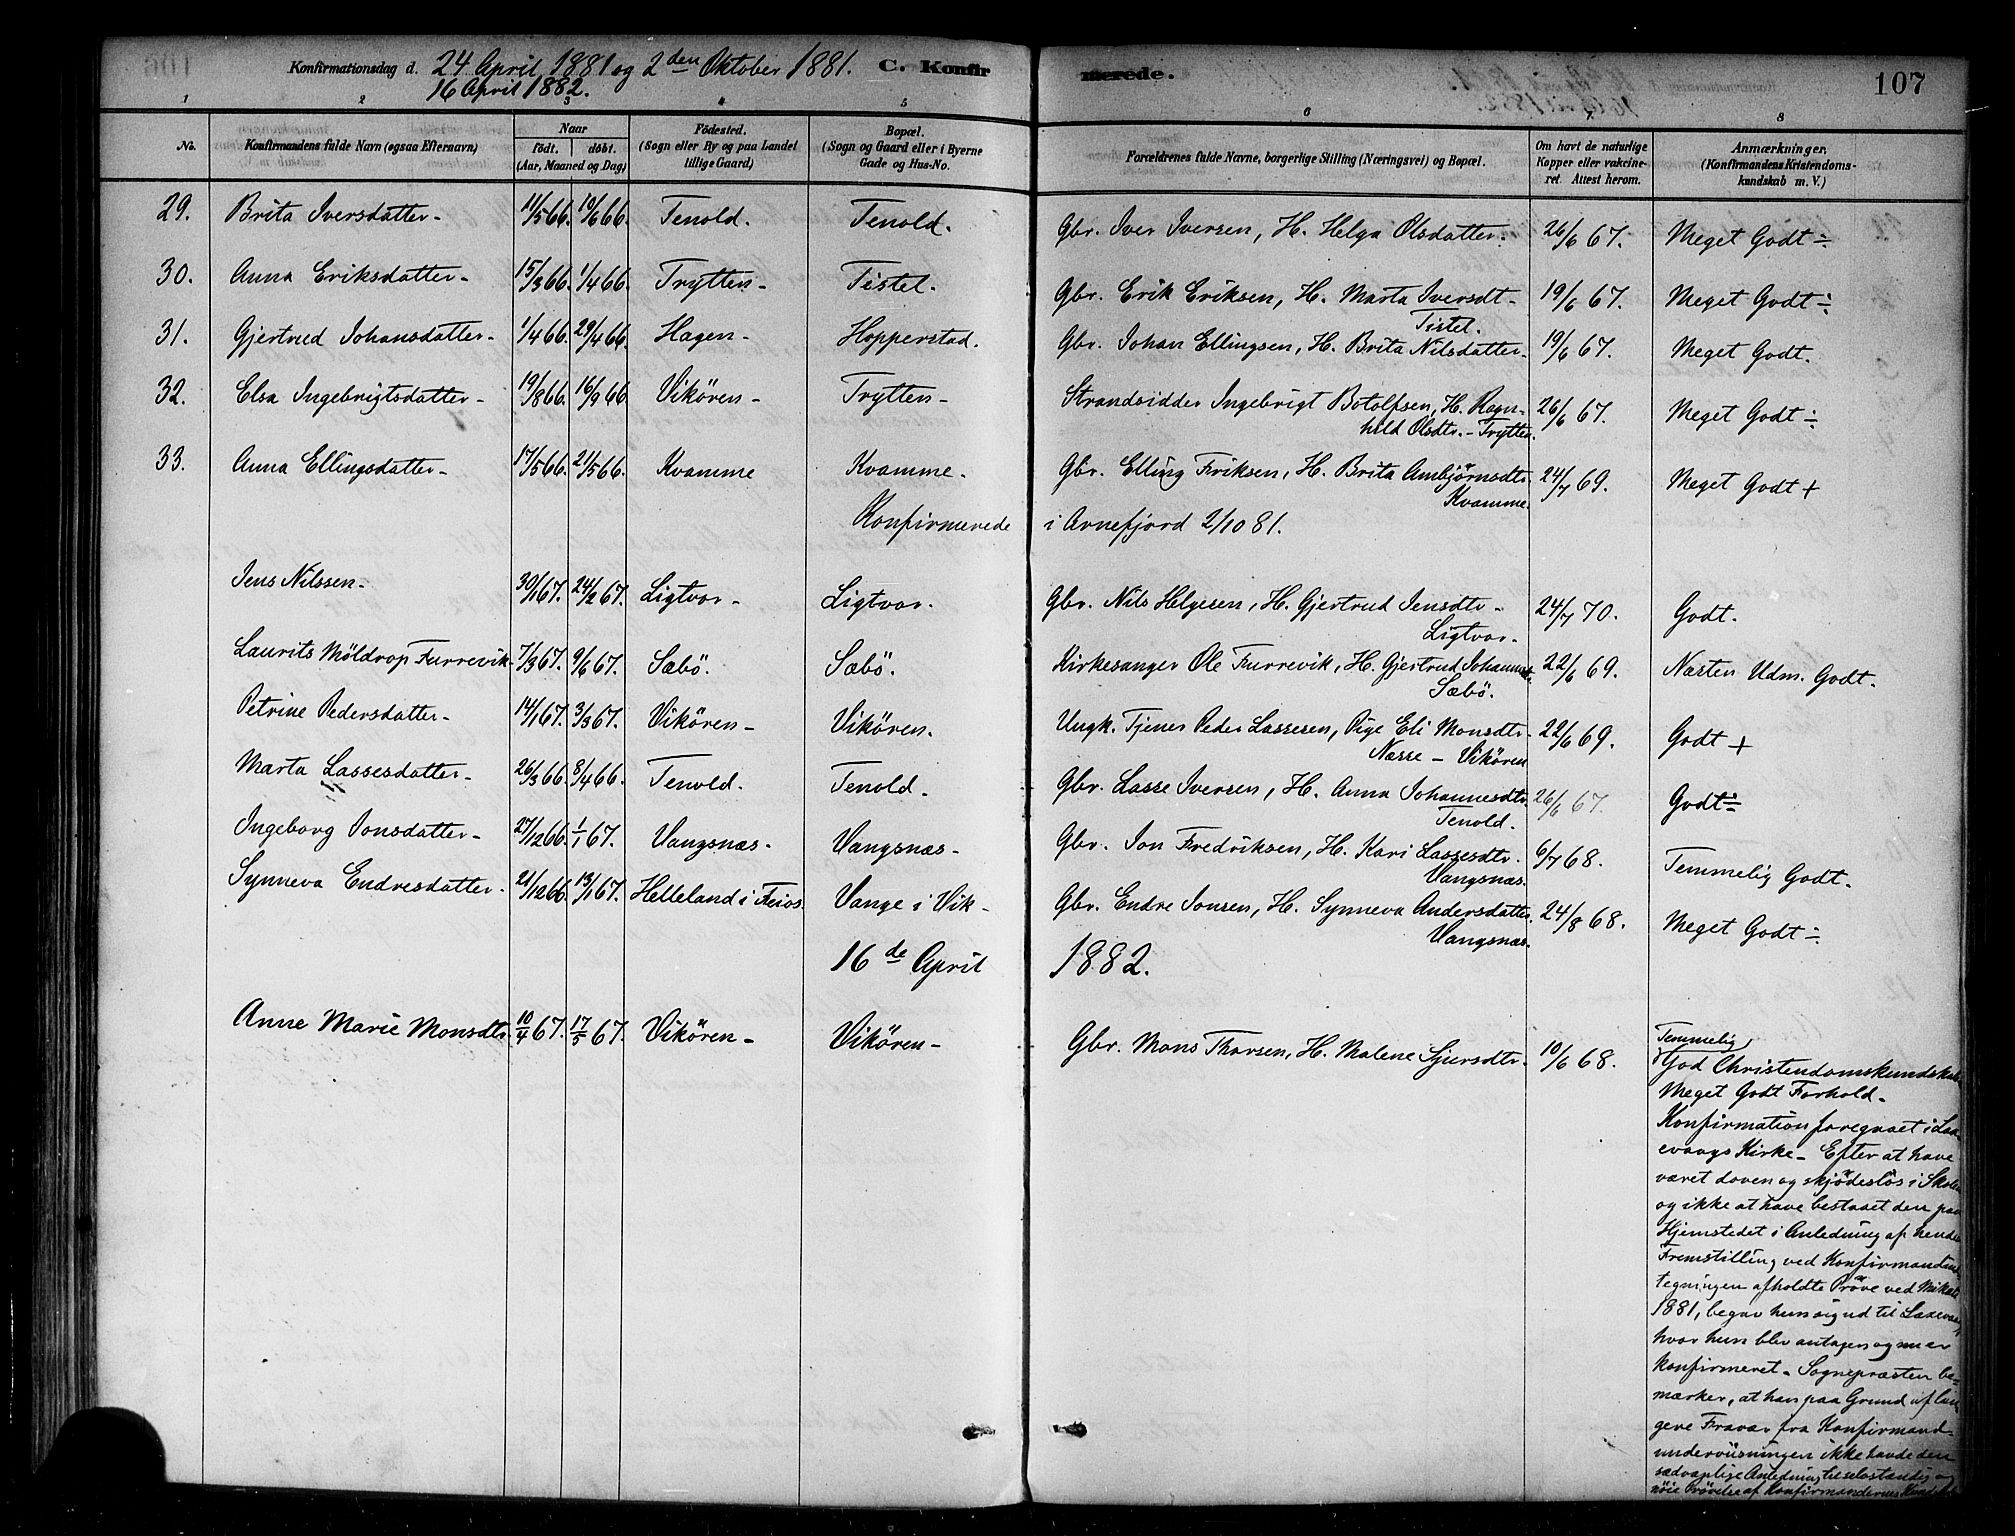 106
Konfirmationsdag d. 24 April 1881 og 2den Oktober 1881. C. Konfirmerede. 107
16 April 1882.
1 2 3 4 5 6 7 8
No. Konfirmandens fulde Navn (ogsaa Efternavn) Naar födt. döbt. (Aar, Maaned og Dag) Födested. (Sogn eller By og paa Landet tillige Gaard) Bopæl. (Sogn og Gaard eller i Byerne Gade og Hus-No. Forældrenes fulde Navne, borgerlige Stilling (Næringsvei) og Bopæl. Om havt de naturlige Kopper eller vakcineret. Attest herom. Anmærkninger. (Konfirmandens Kristendomskundskab m. V.)
29. Brita Iversdatter- 11/5 66. 10/6 66. Tenold. Tenold. Gbr. Iver Iversen, H. Helga Olsdatter. 26/6 67. Meget Godt ÷
30. Anna Eriksdatter- 15/3 66. 1/4 66. Trytten- Tistel. Gbr. Erik Eriksen, H. Marta Iversdt- 19/6 67. Meget Godt ÷
Tistel.
31. Gjertrud Johansdatter- 1/4 66. 29/4 66. Hagen- Hopperstad. Gbr. Johan Ellingsen, H. Brita Nilsdatter- 19/6 67. Meget Godt.
32. Elsa Ingebrigtsdatter- 19/8 66. 16/9 66 Vikören- Trytten- Strandsidder Ingebrigt Botolfsen, H. Ragn- 26/6 67. Meget Godt ÷
hild Olsdtr.- Trytten.
33. Anna Ellingsdatter- 17/5 66. 21/5 66. Kvamme Kvamme. Gbr. Elling Eriksen, H. Brita Ambjörnsdtr. 24/7 69. Meget Godt +
Kvamme.
Konfirmerede i Arnefjord 2/10 81.
Jens Nilssen- 30/1 67. 24/2 67. Ligtvor- Ligtvor. Gbr. Nils Helgesen, H. Gjertrud Jensdtr- 24/7 70. Godt.
Ligtvor.
Laurits Möldrop Furrevik. 7/3 67. 9/6 67. Sæbö. Sæbö. Kirkesanger Ole Furrevik, H. Gjertrud Johannesdt. 22/6 69. Næsten Udm. Godt.
Sæbö.
Petrine Pedersdatter- 14/1 67. 3/3 67. Vikören- Vikören. Ungk. Tjener Peder Lassesen, Pige Eli Monsdtr- 22/6 69. Godt +
Næsse - Vikören
Marta Lassesdatter- 26/3 66. 8/4 66. Tenold. Tenold. Gbr. Lasse Iversen, H. Anna Johannesdtr. 26/6 67. Godt ÷
Tenold.
Ingeborg Jonsdatter- 27/12 66. 1/1 67. Vangsnæs. Vangsnæs- Gbr. Jon Fredriksen, H. Kari Lassesdtr. 6/7 68. Temmelig Godt.
Vangsnæs.
Synneva Endresdatter- 21/12 66. 13/1 67. Helleland i Feios. Vange i Vik- Gbr. Endre Jonsen, H. Synneva Andersdatter. 24/8 68. Meget Godt ÷
Vangsnæs.
16de April 1882.
Anne Marie Monsdtr. 10/4 67. 17/5 67. Vikören- Vikören- Gbr. Mons Thorsen, H. Malene Sjursdtr. 10/6 68. Temmelig
God Christendomskundskab
Meget Godt Forhold.
Konfirmation foregaaet i Lax
evaags Kirke- Efter at have
været doven og skjödeslös i Skolen
og ikke at have bestaaet den paa
Hjemstedet i Anledning af hendes
Fremstilling ved Konfirmandan
tegningen afholdte Pröve ved Mikali
1881, begav hun sig ud til Laxevaag,
hvor hun blev antagen og nu er
konfirmeret- Sognepræsten be-
mærker, at han paa Grund af læn
gere Fravær fra Konfirmand-
undervisningen ikke havde den
sædvanlige Anledning til selvstændig og
nöie Prövelse af Konfirmandens